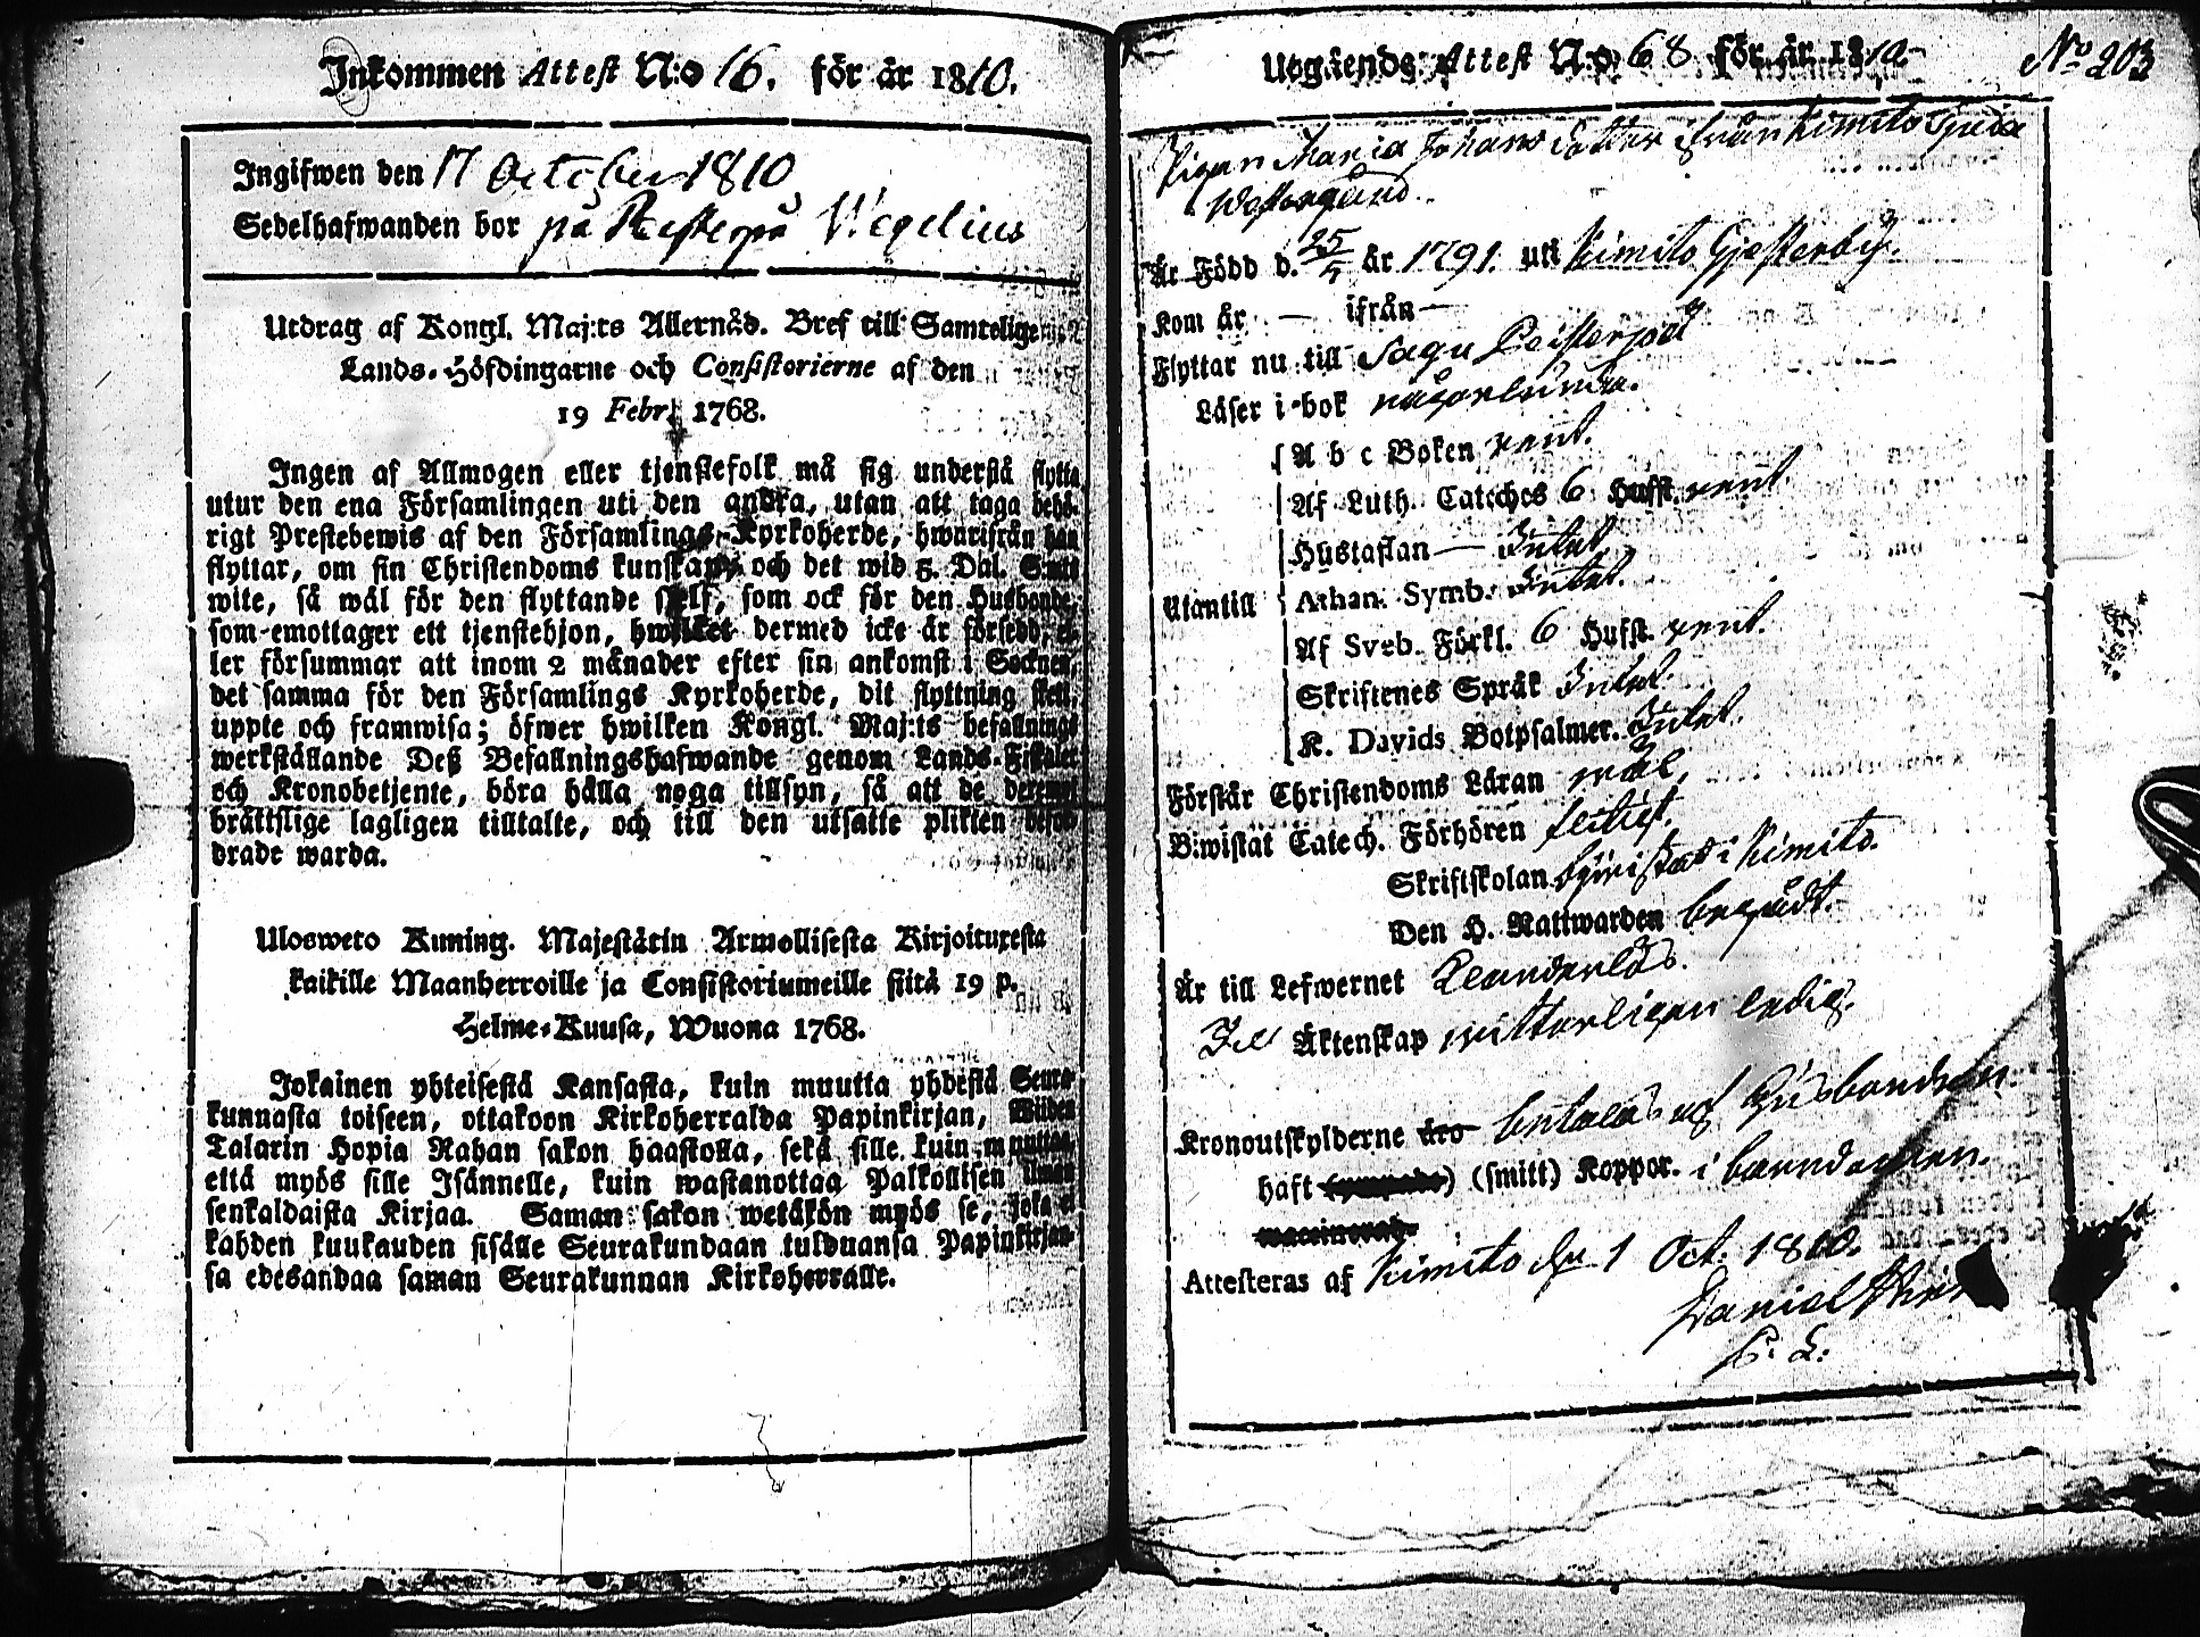 Inkommen Attest N:o 16. för år 1810.
Ingifwen den 17 October 1810
Sedelhafwanden bor på Wegelius
Utdrag af Kongl. Maj:ts Allernåd. Bref till Samtelige
Lands-Höfdingarne och Consistorierne af den
19 Febr. 1768.
Ingen af Allmogen eller tjenstefolk må sig understå flytta
utur den ena Församlingen uti den andra, utan att taga behö-
rigt Prestebewis af den Församlings-Kyrkoherde, hwarifrån han
flyttar, om sin Christendoms kunskap och det wid 5. Dal. S:mts
wite, så wäl för den flyttande sjelf, som ock för den Husbonde,
som emottager ett tjenstehjon, hwilket dermed icke är försedd, el-
ler försummar att inom 2 månader efter sin ankomst i Socknen,
det samma för den Församlings Kyrkoherde, dit flyttning skett,
uppte och framwisa; öfwer hwilken Kongl. Maj:ts befallnings
werkställande Deß Befallningshafwande genom Lands-Fiskaler
och Kronobetjente, böra hålla noga tillsyn, så att de deremot
bråttslige lagligen tilltalte, och till den utsatte plikten befor-
drade warda.
Ulosweto Kuning. Majestätin Armollisesta Kirjoituxesta
kaikille Maanherroille ja Consistoriumeille siitä 19 p.
Helme-Kuusa, Wuona 1768.
Jokainen yhteisestä Kansasta, kuin muutta yhdestä Seura-
kunnasta toiseen, ottakoon Kirkoherralda Papinkirjan, Wiiden
Talarin Hopia Rahan sakon haastolla, sekä sille kuin muuttaa,
että myös sille Isännelle, kuin wastanottaa Palkollisen ilman
senkaldaista Kirjaa. Saman sakon wetäkön myös se, joka ei
kahden kuukauden sisälle Seurakundaan tulduansa Papinkirjan-
sa edesandaa saman Seurakunnan Kirkoherralle.
Utgående Attest N:o 68 för år 1810
No 203
Pigan Maria Johans Dotter ifrån Kimito
Är Född d. 25/4 år 1791. uti Kimito Gjesterby.
Kom år — ifrån —
Flyttar nu till Sagu
Läser i bok någorlunda.
A b c Boken rent.
Af Luth. Cateches 6 Hufst. rent
Hustaflan — Intet
Utantill
Athan. Symb. Intet.
Af Sveb. Förkl. 6 Hufst. rent.
Skriftenes Språk Intet.
K. Davids Botpsalmer. Intet.
Förstår Christendoms Läran wäl,
B:wistat Catech. Förhören flitigt.
Skriftskolan bijwistat i Kimito.
Den H. Nattwarden begådt.
Är till Lefwernet Klanderlös.
Till Äktenskap witterligen ledig.
Kronoutskylderne äro betalas af Husbonden.
haft (smitt) Koppor. i barndomen.
Attesteras af Kimito d. 1 Oct. 1810.
Daniel